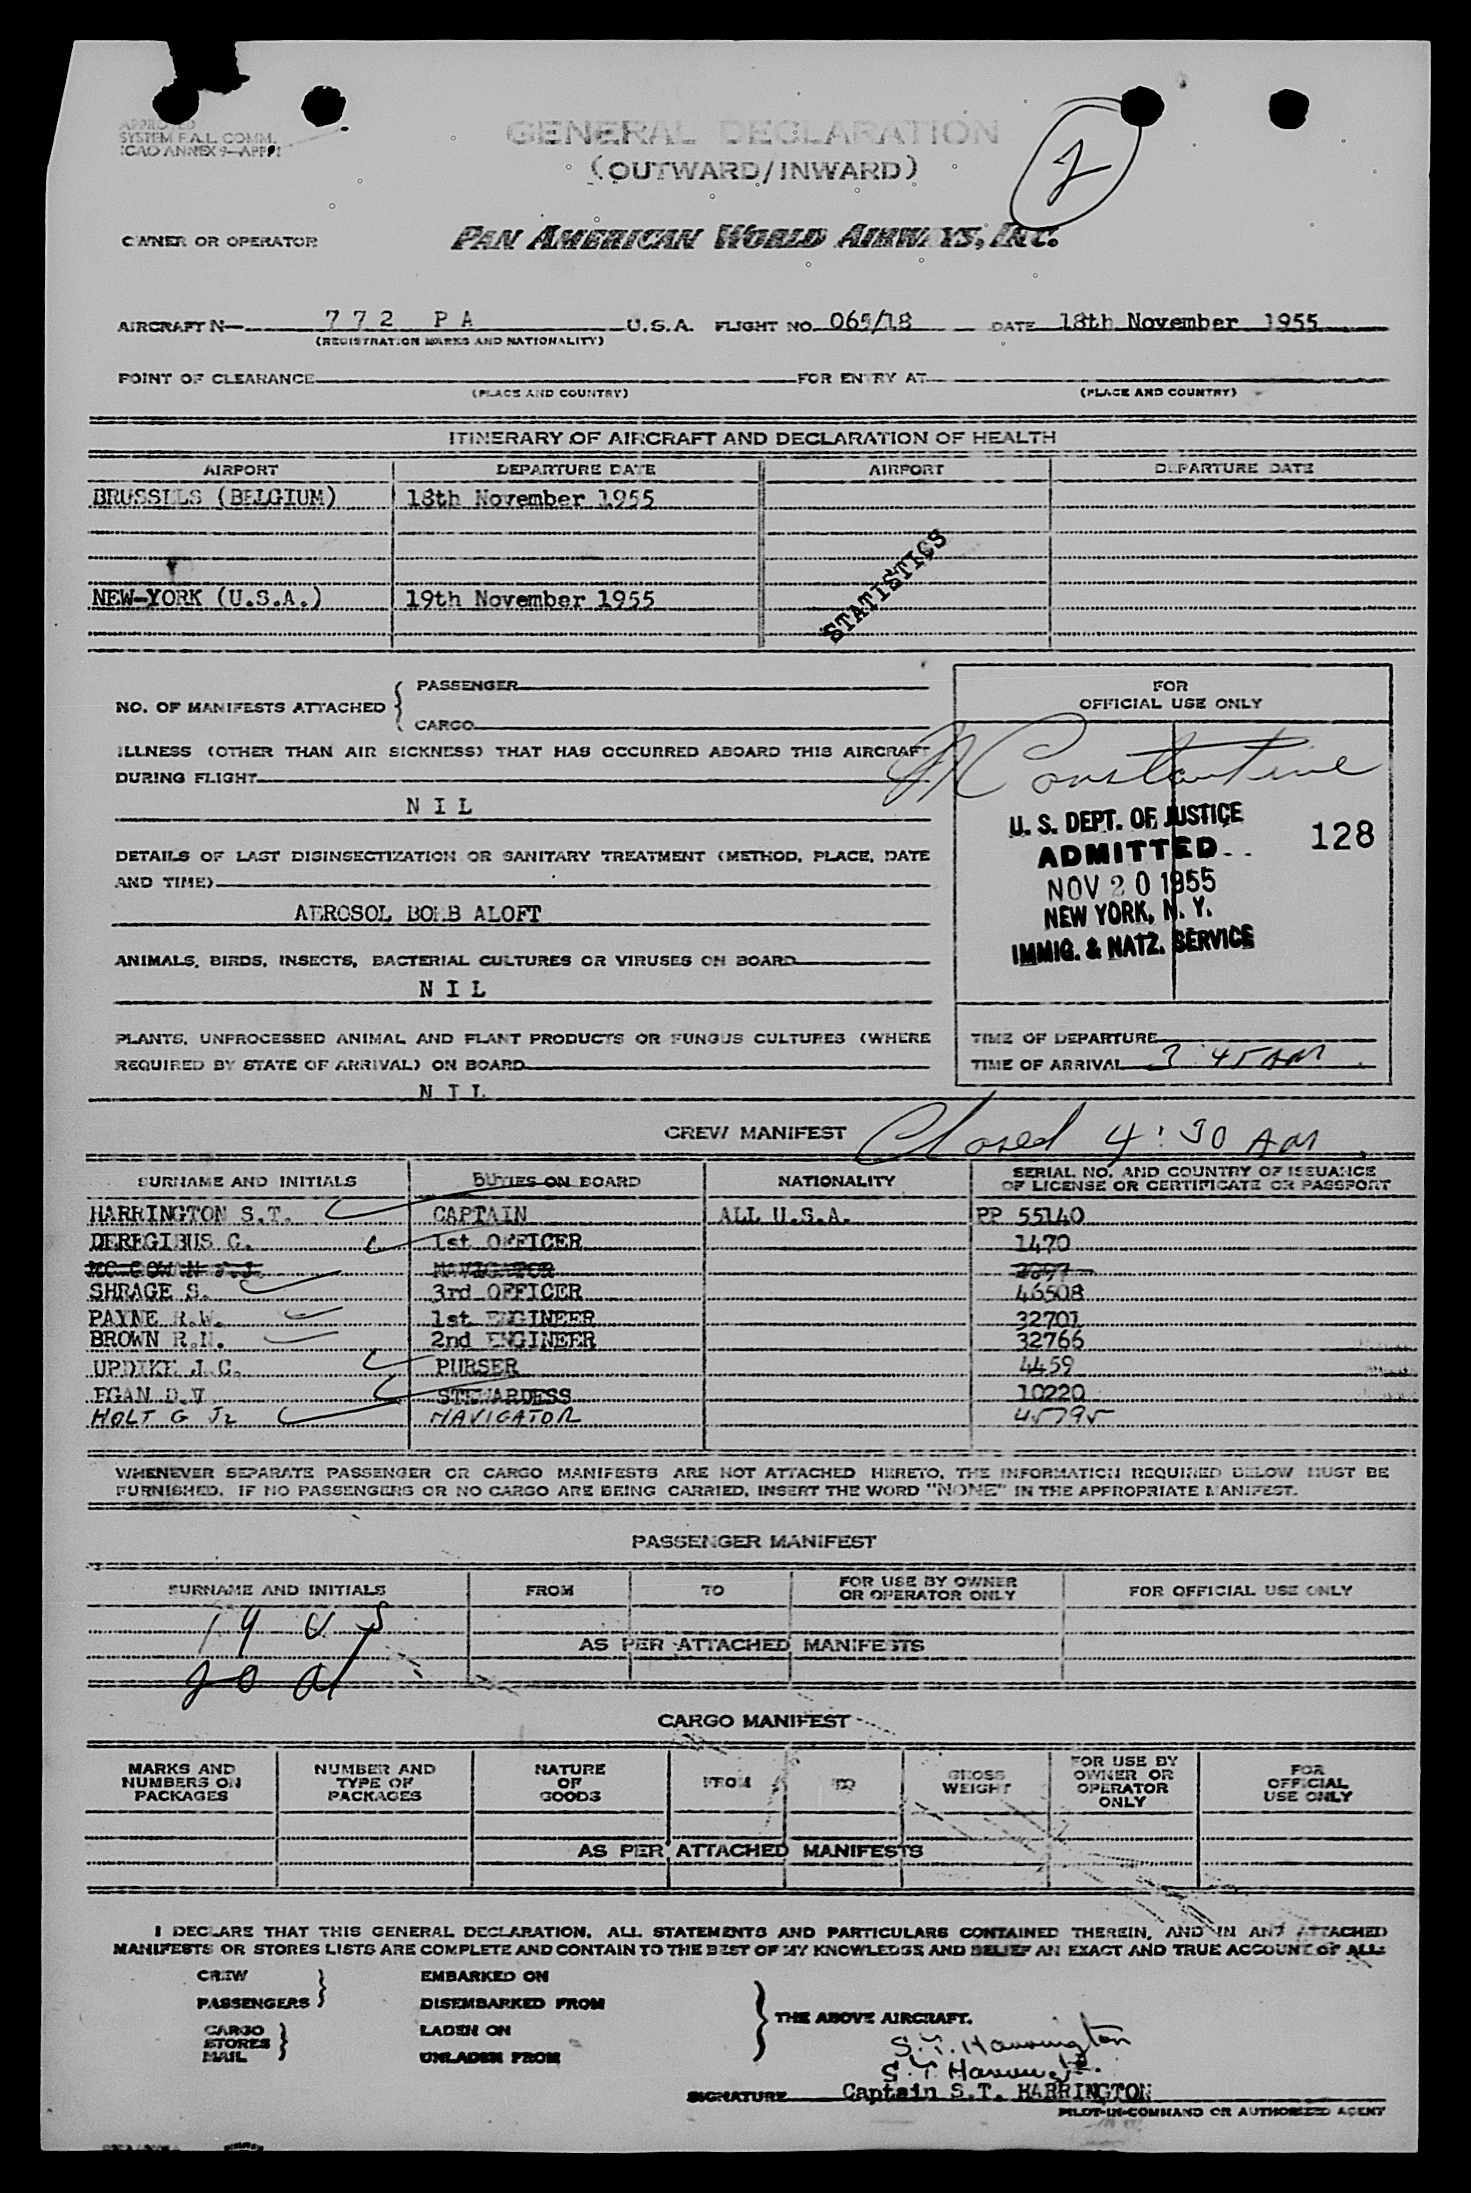 APPROVED
SYSTEM F.A.L. COMM.
ICAO ANNEX 9—APP. 1
GENERAL DECLARATION
(OUTWARD/INWARD)
2
OWNER OR OPERATOR
PAN AMERICAN WORLD AIRWAYS, INC.
AIRCRAFT N— 772 PA U.S.A. FLIGHT NO. 065/18 DATE 18th November 1955
(REGISTRATION MARKS AND NATIONALITY)
POINT OF CLEARANCE FOR ENTRY AT
(PLACE AND COUNTRY) (PLACE AND COUNTRY)
ITINERARY OF AIRCRAFT AND DECLARATION OF HEALTH
AIRPORT DEPARTURE DATE AIRPORT DEPARTURE DATE
BRUSSELS (BELGIUM) 18th November 1955
STATISTICS
NEW-YORK (U.S.A.) 19th November 1955
NO. OF MANIFESTS ATTACHED { PASSENGER
CARGO
ILLNESS (OTHER THAN AIR SICKNESS) THAT HAS OCCURRED ABOARD THIS AIRCRAFT
DURING FLIGHT
NIL
DETAILS OF LAST DISINSECTIZATION OR SANITARY TREATMENT (METHOD, PLACE, DATE
AND TIME)
AEROSOL BOMB ALOFT
ANIMALS, BIRDS, INSECTS, BACTERIAL CULTURES OR VIRUSES ON BOARD
NIL
PLANTS, UNPROCESSED ANIMAL AND PLANT PRODUCTS OR FUNGUS CULTURES (WHERE
REQUIRED BY STATE OF ARRIVAL) ON BOARD
NIL
FOR
OFFICIAL USE ONLY
Constantine
U. S. DEPT. OF JUSTICE
ADMITTED
128
NOV 20 1955
NEW YORK, N. Y.
IMMIG. & NATZ. SERVICE
TIME OF DEPARTURE
TIME OF ARRIVAL 3:45 AM
CREW MANIFEST Closed 4:30 AM
SURNAME AND INITIALS DUTIES ON BOARD NATIONALITY SERIAL NO. AND COUNTRY OF ISSUANCE
OF LICENSE OR CERTIFICATE OR PASSPORT
HARRINGTON S.T. CAPTAIN ALL U.S.A. PP 55140
DEREGIBUS C. 1st OFFICER 1470
NAVIGATOR
SHRAGE S. 3rd OFFICER 46508
PAYNE R.W. 1st ENGINEER 32701
BROWN R.N. 2nd ENGINEER 32766
UPDIKE J.C. PURSER 4459
EGAN D.V STEWARDESS 10220
HOLT G Jr NAVIGATOR 45795
WHENEVER SEPARATE PASSENGER OR CARGO MANIFESTS ARE NOT ATTACHED HERETO, THE INFORMATION REQUIRED BELOW MUST BE
FURNISHED. IF NO PASSENGERS OR NO CARGO ARE BEING CARRIED, INSERT THE WORD "NONE" IN THE APPROPRIATE MANIFEST.
PASSENGER MANIFEST
SURNAME AND INITIALS FROM TO FOR USE BY OWNER
OR OPERATOR ONLY FOR OFFICIAL USE ONLY
19 US
AS PER ATTACHED MANIFESTS
20 al
CARGO MANIFEST
MARKS AND
NUMBERS ON
PACKAGES
NUMBER AND
TYPE OF
PACKAGES
NATURE
OF
GOODS
FROM
TO
GROSS
WEIGHT
FOR USE BY
OWNER OR
OPERATOR
ONLY
FOR
OFFICIAL
USE ONLY
AS PER ATTACHED MANIFESTS
I DECLARE THAT THIS GENERAL DECLARATION, ALL STATEMENTS AND PARTICULARS CONTAINED THEREIN, AND IN ANY ATTACHED
MANIFESTS OR STORES LISTS ARE COMPLETE AND CONTAIN TO THE BEST OF MY KNOWLEDGE AND BELIEF AN EXACT AND TRUE ACCOUNT OF ALL:
CREW } EMBARKED ON
PASSENGERS DISEMBARKED FROM
THE ABOVE AIRCRAFT.
CARGO LADEN ON
STORES }
MAIL UNLADEN FROM
S.T. Harrington
S.T. Harrington
SIGNATURE Captain S.T. HARRINGTON
PILOT-IN-COMMAND OR AUTHORIZED AGENT